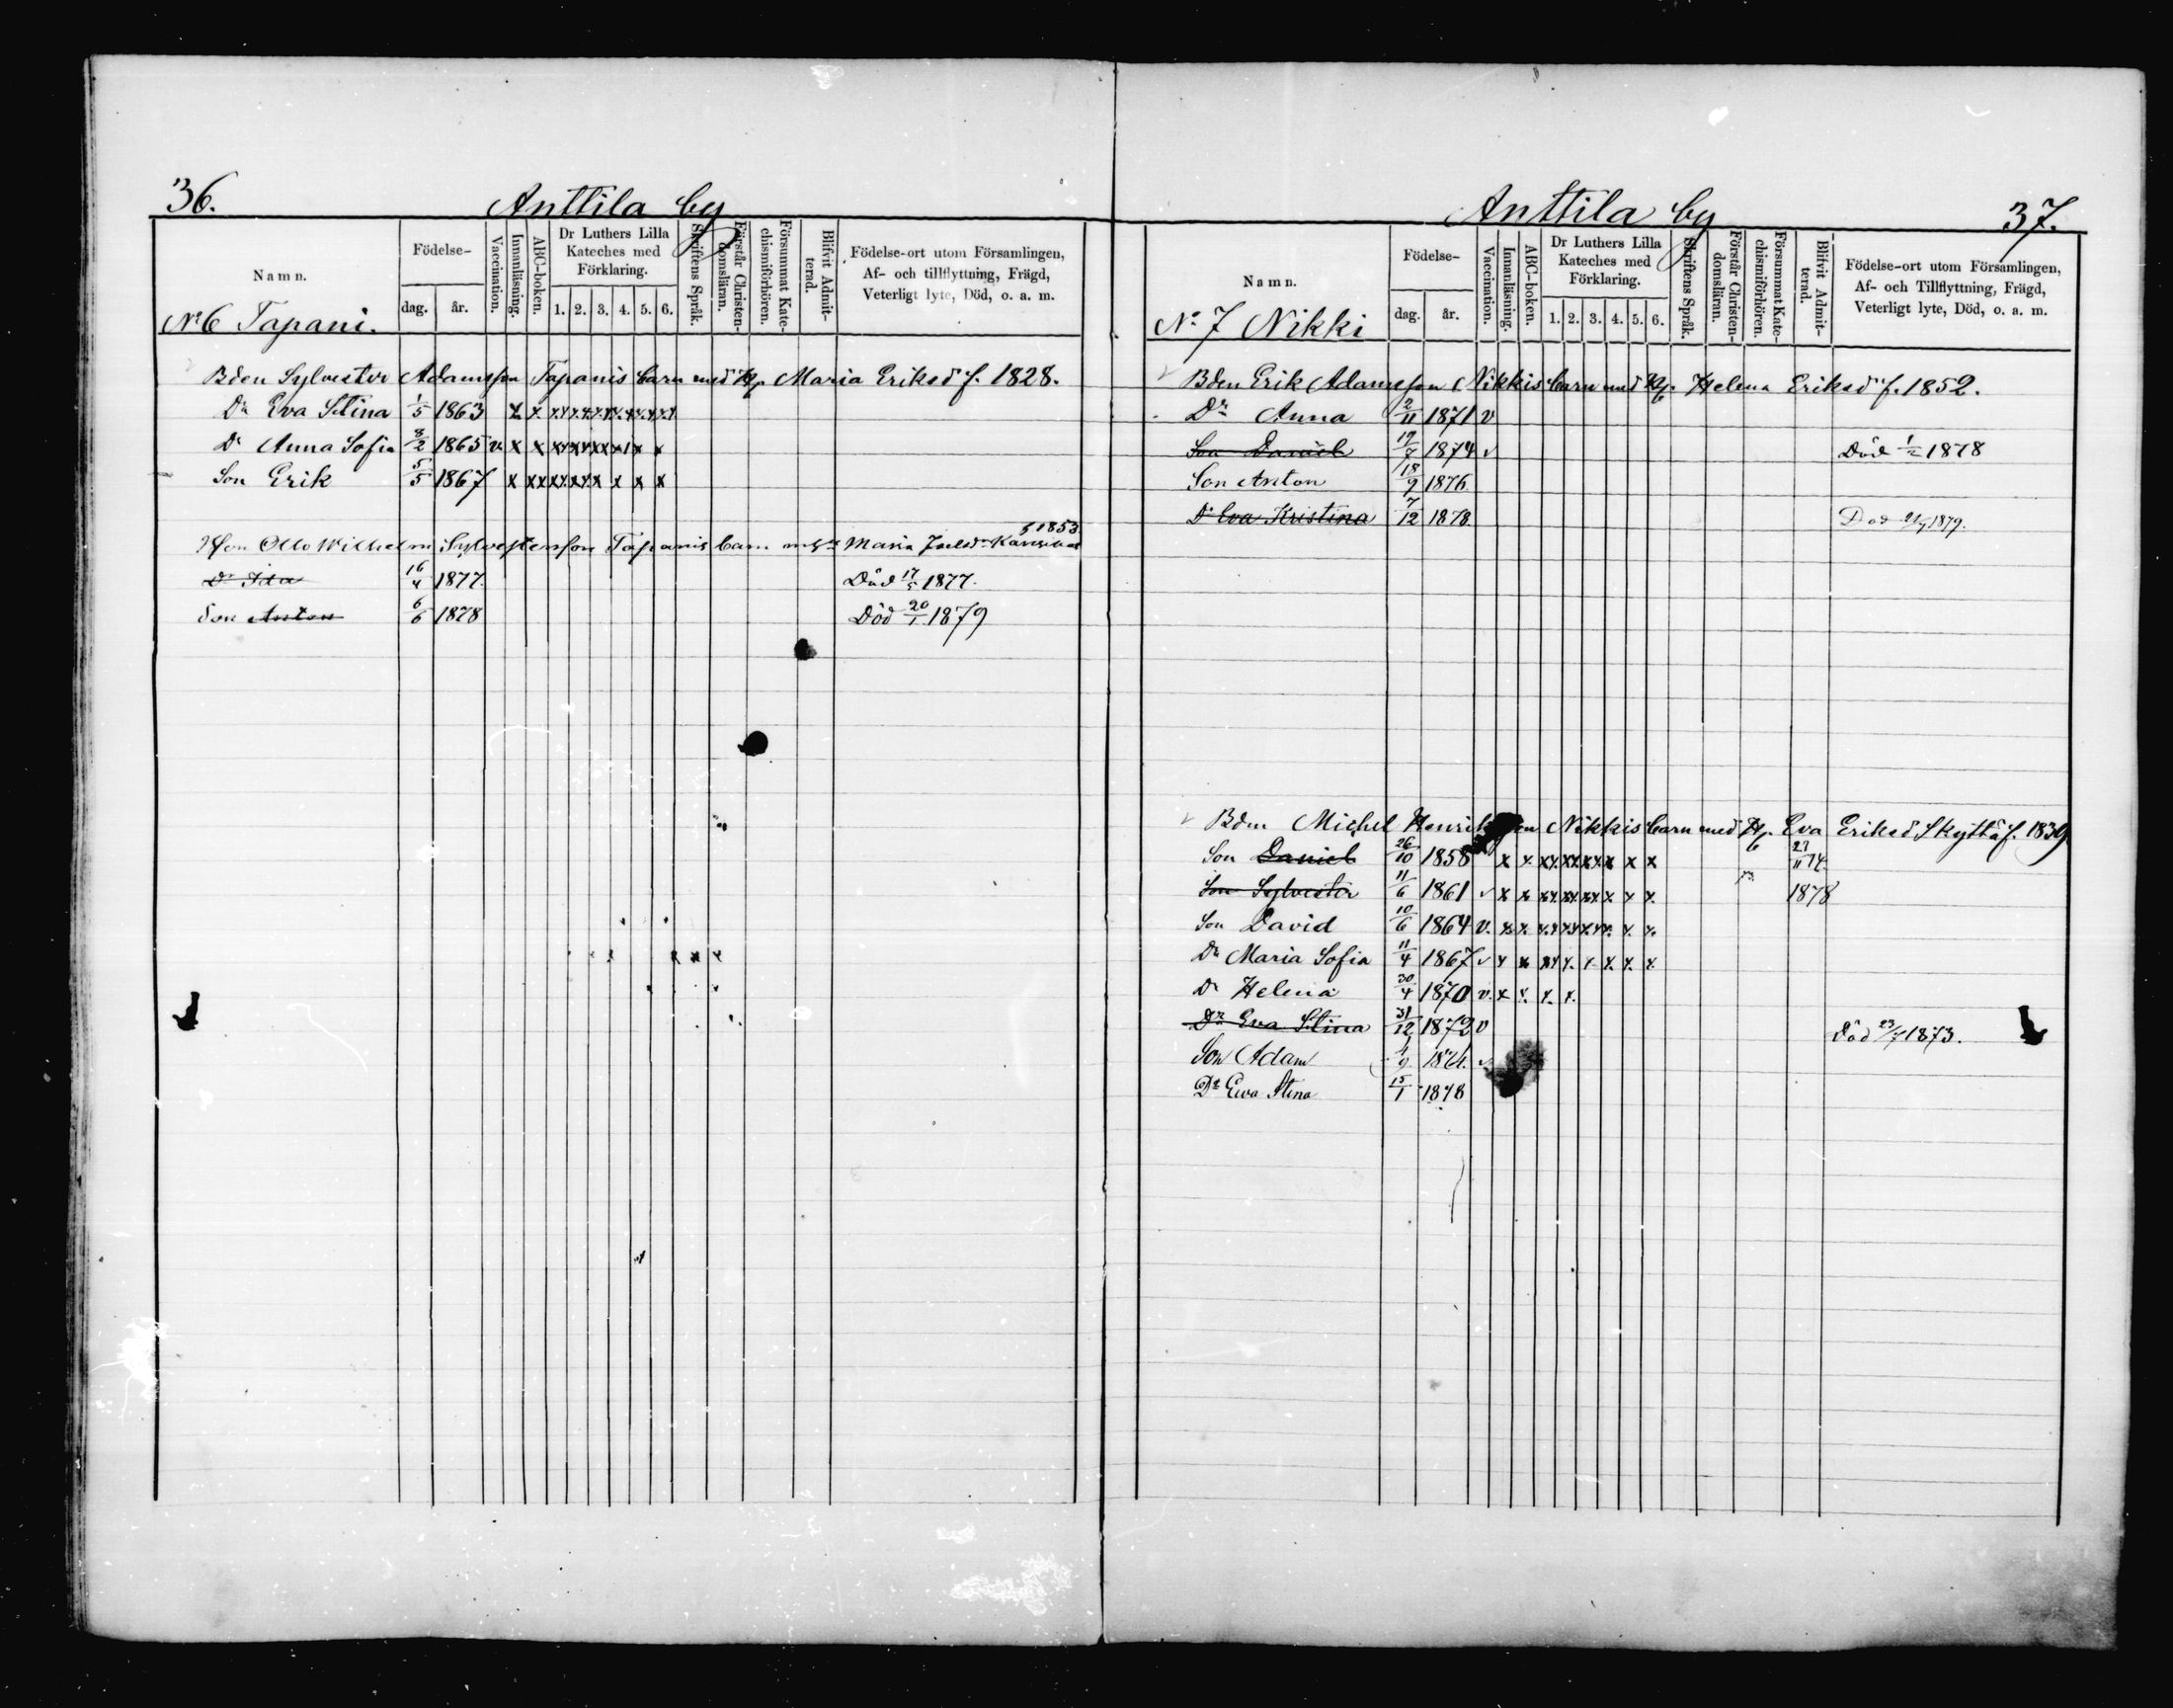 36.
Anttila by
Namn.
Födelse-
dag. år.
Vaccination.
Innanläsning.
ABC-boken.
Dr Luthers Lilla Kateches med Förklaring.
1. 2. 3. 4. 5. 6.
Skriftens Språk.
Förstår Christendomsläran.
Försummat Katechismiförhören.
Blifvit Admitterad.
Födelse-ort utom Församlingen,
Af- och tillflyttning, Frägd,
Veterligt lyte, Död, o. a. m.
No 6 Tapani.
Bden Sylvester Adamsson Tapanis barn med H. Maria Eriksd f. 1828.
Dr Eva Stina 1/5 1863 x x x x x x x x x x x x
Dr Anna Sofia 8/2 1865 v x x x x x x x x x x x
Son Erik 5/5 1867 x x x x x x x x x x x
f 1853
Otto Wilhelm Sylvestersson Tapanis barn Maria
Dr Ida 16/4 1877. Död 17/5 1877.
Son Anton 6/6 1878 Död 20/1 1879
Anttila by
37.
Namn.
Födelse-
dag. år.
Vaccination.
Innanläsning.
ABC-boken.
Dr Luthers Lilla Kateches med Förklaring.
1. 2. 3. 4. 5. 6.
Skriftens Språk.
Förstår Christendomsläran.
Försummat Katechismiförhören.
Blifvit Admitterad.
Födelse-ort utom Församlingen,
Af- och Tillflyttning, Frägd,
Veterligt lyte, Död, o. a. m.
No 7 Nikki
Bden Erik Adamsson Nikkis barn med H. Helena Eriksd f. 1852.
Dr Anna 2/11 1871 v
Son Daniel 19/7 1874 v Död 1/2 1878
Son Anton 18/9 1876
Dr Eva Kristina 7/12 1878 Död 1879.
Bden Michel Henriksson Nikkis barn med H. Eva Eriksd Skyttä f. 1839
Son Daniel 26/10 1858 x x x x x x x x x x 74.
Son Sylvester 11/6 1861 v x x x x x x x x x x 1878
Son David 10/6 1864 v. x x x x x x x x x x
Dr Maria Sofia 11/4 1867 v x x x x x x x x x
Dr Helena 30/4 1870 v. x x x x
Dr Eva Stina 31/12 1872 v Död 23/7 1873.
Son Adam
Dr Eva Stina 15/1 1878